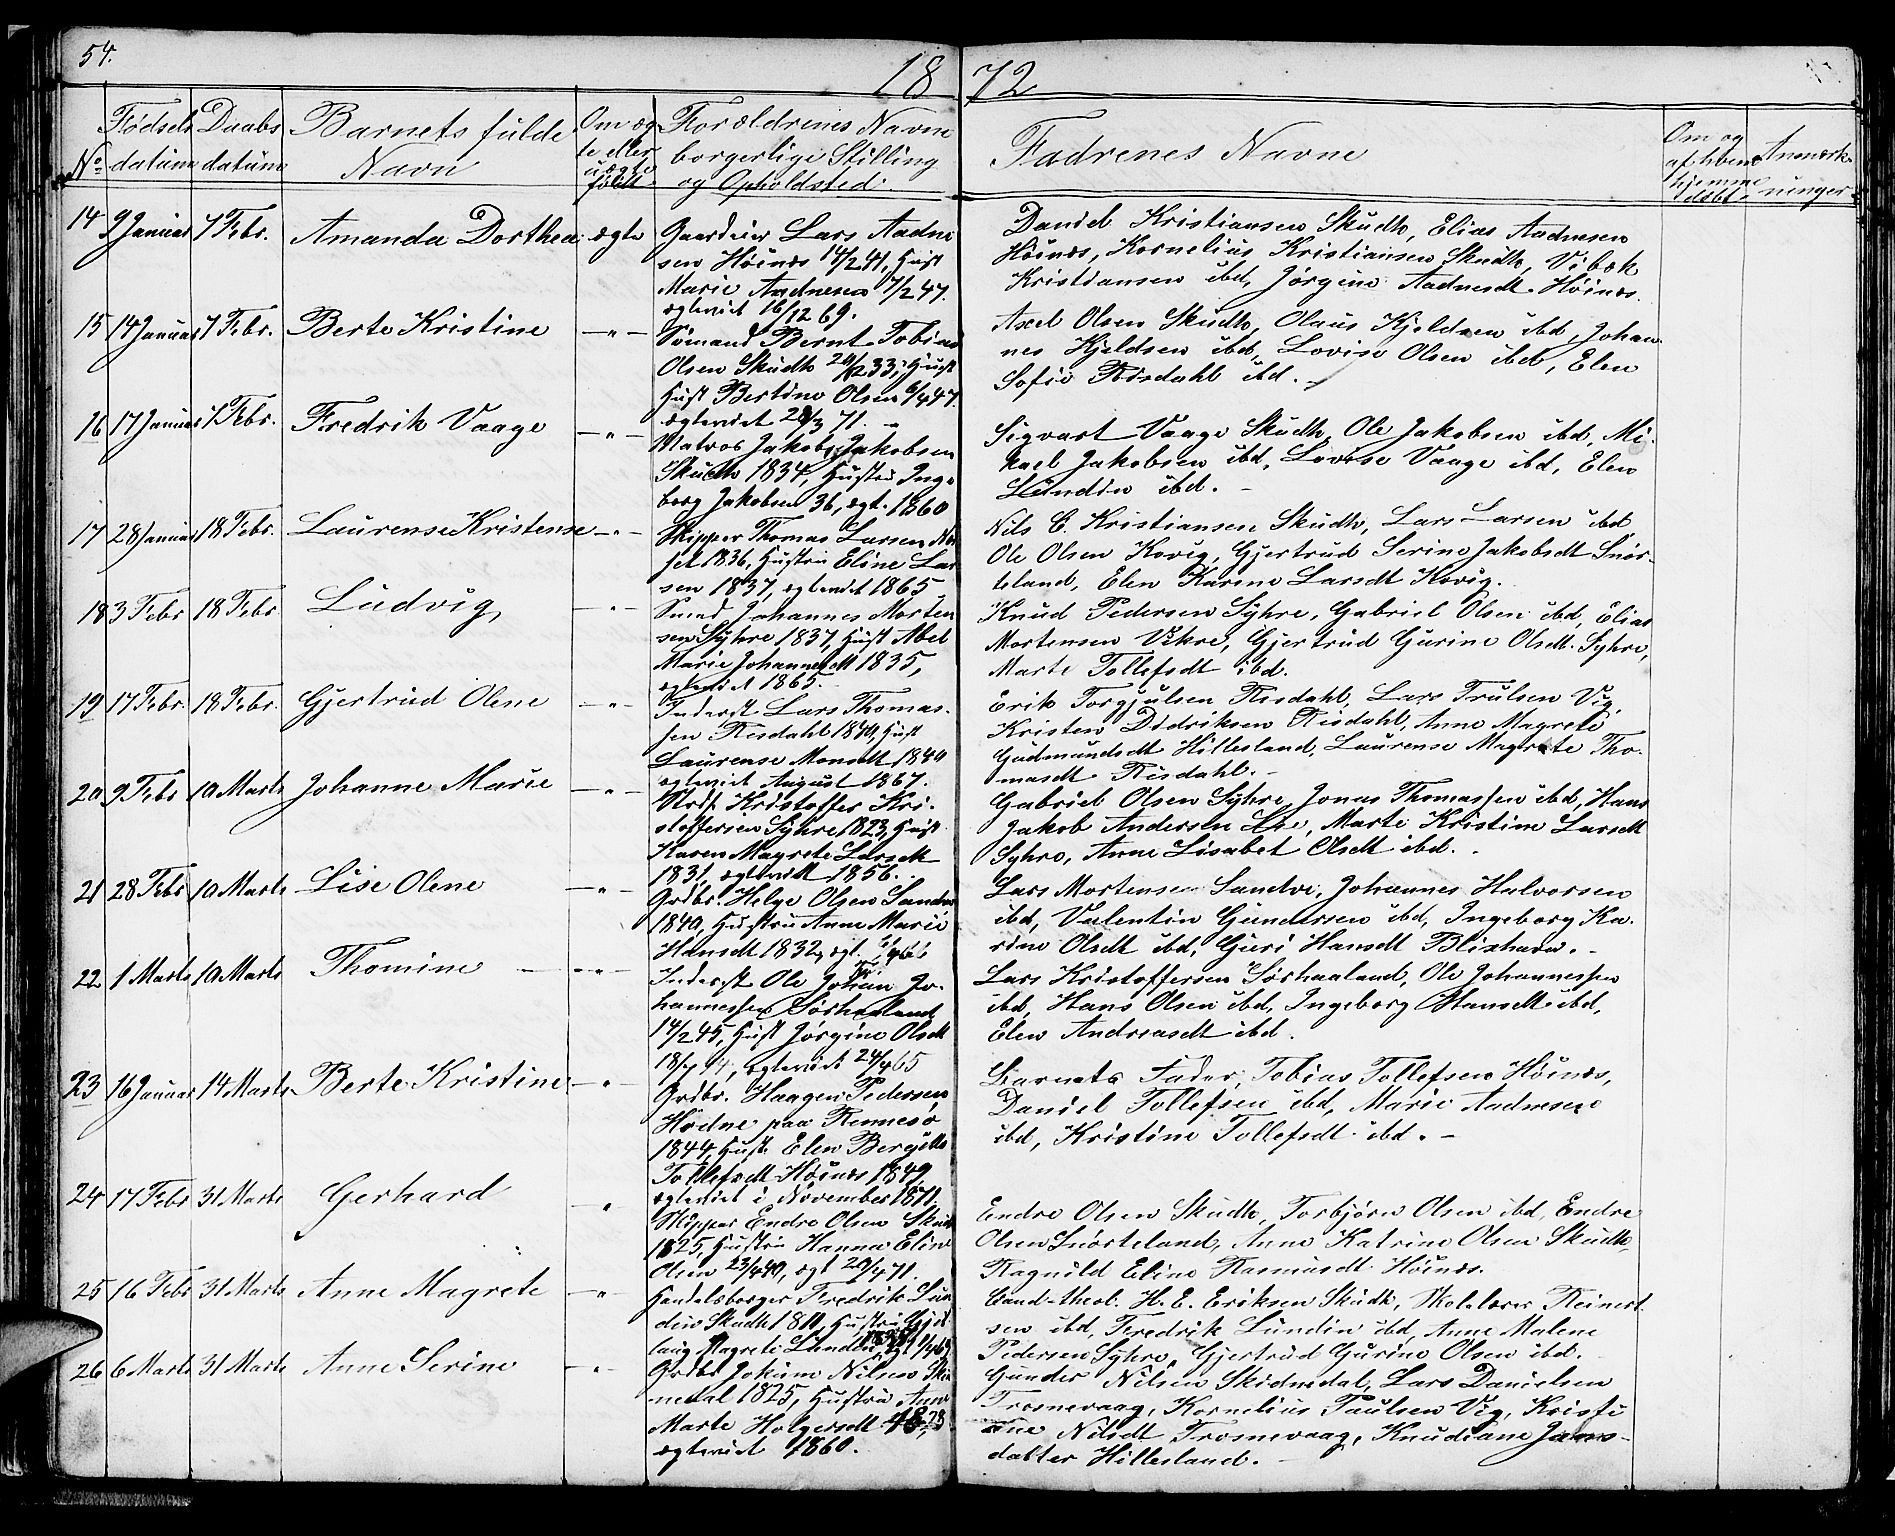 54.
18 72
No
Fødsels datum
Daabs datum
Barnets fulde Navn
Om ægte eller uægte født
Forældrenes Navne borgerlige Stilling og Opholdsted.
Fadrenes Navne
Om og af hvem hjemme døbt.
Anmærkninger
14 9 Januar 7 Febr. Amanda Dorthea ægte
Gaardeier Lars Aadne
sen Høinæs 14/2 41, Hust
Marie Aadnesen 7/2 47.
ægteviet 16/12 69.
Daniel Kristiansen Skudh, Elias Aadnesen
Høinæs, Kornelius Kristiansen Skudh, Vibek
Kristiansen ibd, Jørgine Aadnesdt. Høinæs.
15 14 Januar 7 Febr. Berte Kristine — " —
Sømand Bernt Tobias
Olsen Skudh 20/12 33, Hust
Hust Bertine Olsen 6/4 47.
ægteviet 28/3 71. -
Axel Olsen Skudh, Olaus Kjeldsen ibd, Johan
nes Kjeldsen ibd, Lovise Olsen ibd, Elen
Sofie Risdahl ibd. -
16 17 Januar 7 Febr. Fredrik Vaage — " —
Matros Jakob Jakobsen
Skudh 1834, Hustru Inge
borg Jakobsen 36, ægt. 1860
Sigvart Vaage Skudh, Ole Jakobsen ibd, Mi-
kael Jakobsen ibd, Lovise Vaage ibd, Elen
Lundin ibd. -
17 28 Januar 18 Febr. Laurense Kristense — " —
Skipper Thomas Larsen
1836, Hustru Eline Lar
sen 1837, ægteviet 1865
Nils C. Kristiansen Skudh, Lars Larsen ibd
Ole Olsen Kovig, Gjertrud Serine Jakobsdt Snør-
teland, Elen Karine Larsdt Kovig.
18 3 Febr 18 Febr. Ludvig — " —
Smed Johannes Morten
sen Syhre 1837, Hust Abel
Marie Johannesdt 1835,
ægteviet 1865.
Knud Pedersen Syhre, Gabriel Olsen ibd, Elias
Mortensen Vikre, Gjertrud Gurine Olsdt. Syhre,
Marte Tollefsdt ibd.
19 17 Febr. 18 Febr. Gjertrud Olene — " —
Inderst Lars Thomas-
sen Risdahl 1840, Hust
Laurense Monsdt 1840
ægteviet August 1867.
Erik Torgjulsen Risdahl, Lars Trulsen Vig,
Kristen Didriksen Risdahl, Anne Magrete
Gudmundsdt Hillesland, Laurense Magrete Tho-
masdt Risdahl. -
20 9 Febr 10 Marts Johanne Marie — " —
Kristoffer Kri-
stoffersen Syhre 1823, Hust
Karen Magrete Larsdt
1831, ægteviet 1856.
Gabriel Olsen Syhre, Jonas Thomassen ibd, Hans
Jakob Andersen Lie, Marte Kristine Larsdt
Syhre, Anne Lisabet Olsdt ibd. -
21 28 Febr 10 Marts Lise Olene — " —
Grdbr. Helge Olsen Sandve
1840, Hustru Anne Marie
Hansdt 1832, ægt.
Lars Mortensen Sandve, Johannes Halvorsen
ibd, Valentin Gundersen ibd, Ingeborg Ka-
rine Olsdt ibd, Guri Hansdt Blixhavn. -
22 1 Marts 10 Marts Thomine — " —
Inderst Ole Johan Jo-
hannessen Sørhaaland
14/2 45, Hust Jørgine Olsdt
ægteviet 24/4 65
Lars Kristoffersen Sørhaaland, Ole Johannessen
ibd, Hans Olsen ibd, Ingeborg Hansdt ibd,
Elen Andreasdt ibd.
23 16 Januar 14 Marts Berte Kristine — " —
Grdbr. Haagen Pedersen
Hodne paa Rennesø
1844, Hust. Elen Bergitte
Tollefsdt Høinæs 1849
ægteviet i November 1871.
Barnets Fader, Tobias Tollefsen Høinæs,
Daniel Tollefsen ibd, Marie Aadnesen
ibd, Kristine Tollefsdt ibd. -
24 17 Febr 31 Marts Gerhard — " —
Skipper Endre Olsen Skudh
1825, Hustru Hanna Eline
Olsen 23/4 40, ægt 20/4 71.
Endre Olsen Skudh, Torbjørn Olsen ibd, Endre
Olsen Snørteland, Anne Katrine Olsen Skudh,
Ragnild Eline Rasmusdt Høinæs.
25 16 Febr 31 Marts Anne Magrete — " —
Handelsborger Fredrik Lun
din Skudh Hustru Gjert
Magrete Lundin
Cand. theol. H. E. Eriksen Skudh, Skolelærer Reinert
sen ibd, Fredrik Lundin ibd, Anne Malene
Pedersen Syhre, Gjertrud Gurine Olsen ibd.
26 6 Marts 31 Marts Anne Serine — " —
Grdbr Jokum Nilsen
1825, Hustru Anne
Marte Holgersdt 28
ægteviet 1860.
Gunder Nilsen Skidnedal, Lars Danielsen
Trosnevaag, Kornelius Paulsen Vig, Kristi
ane Nilsdt Trosnevaag, Knudiane Jans-
datter Hillesland. -